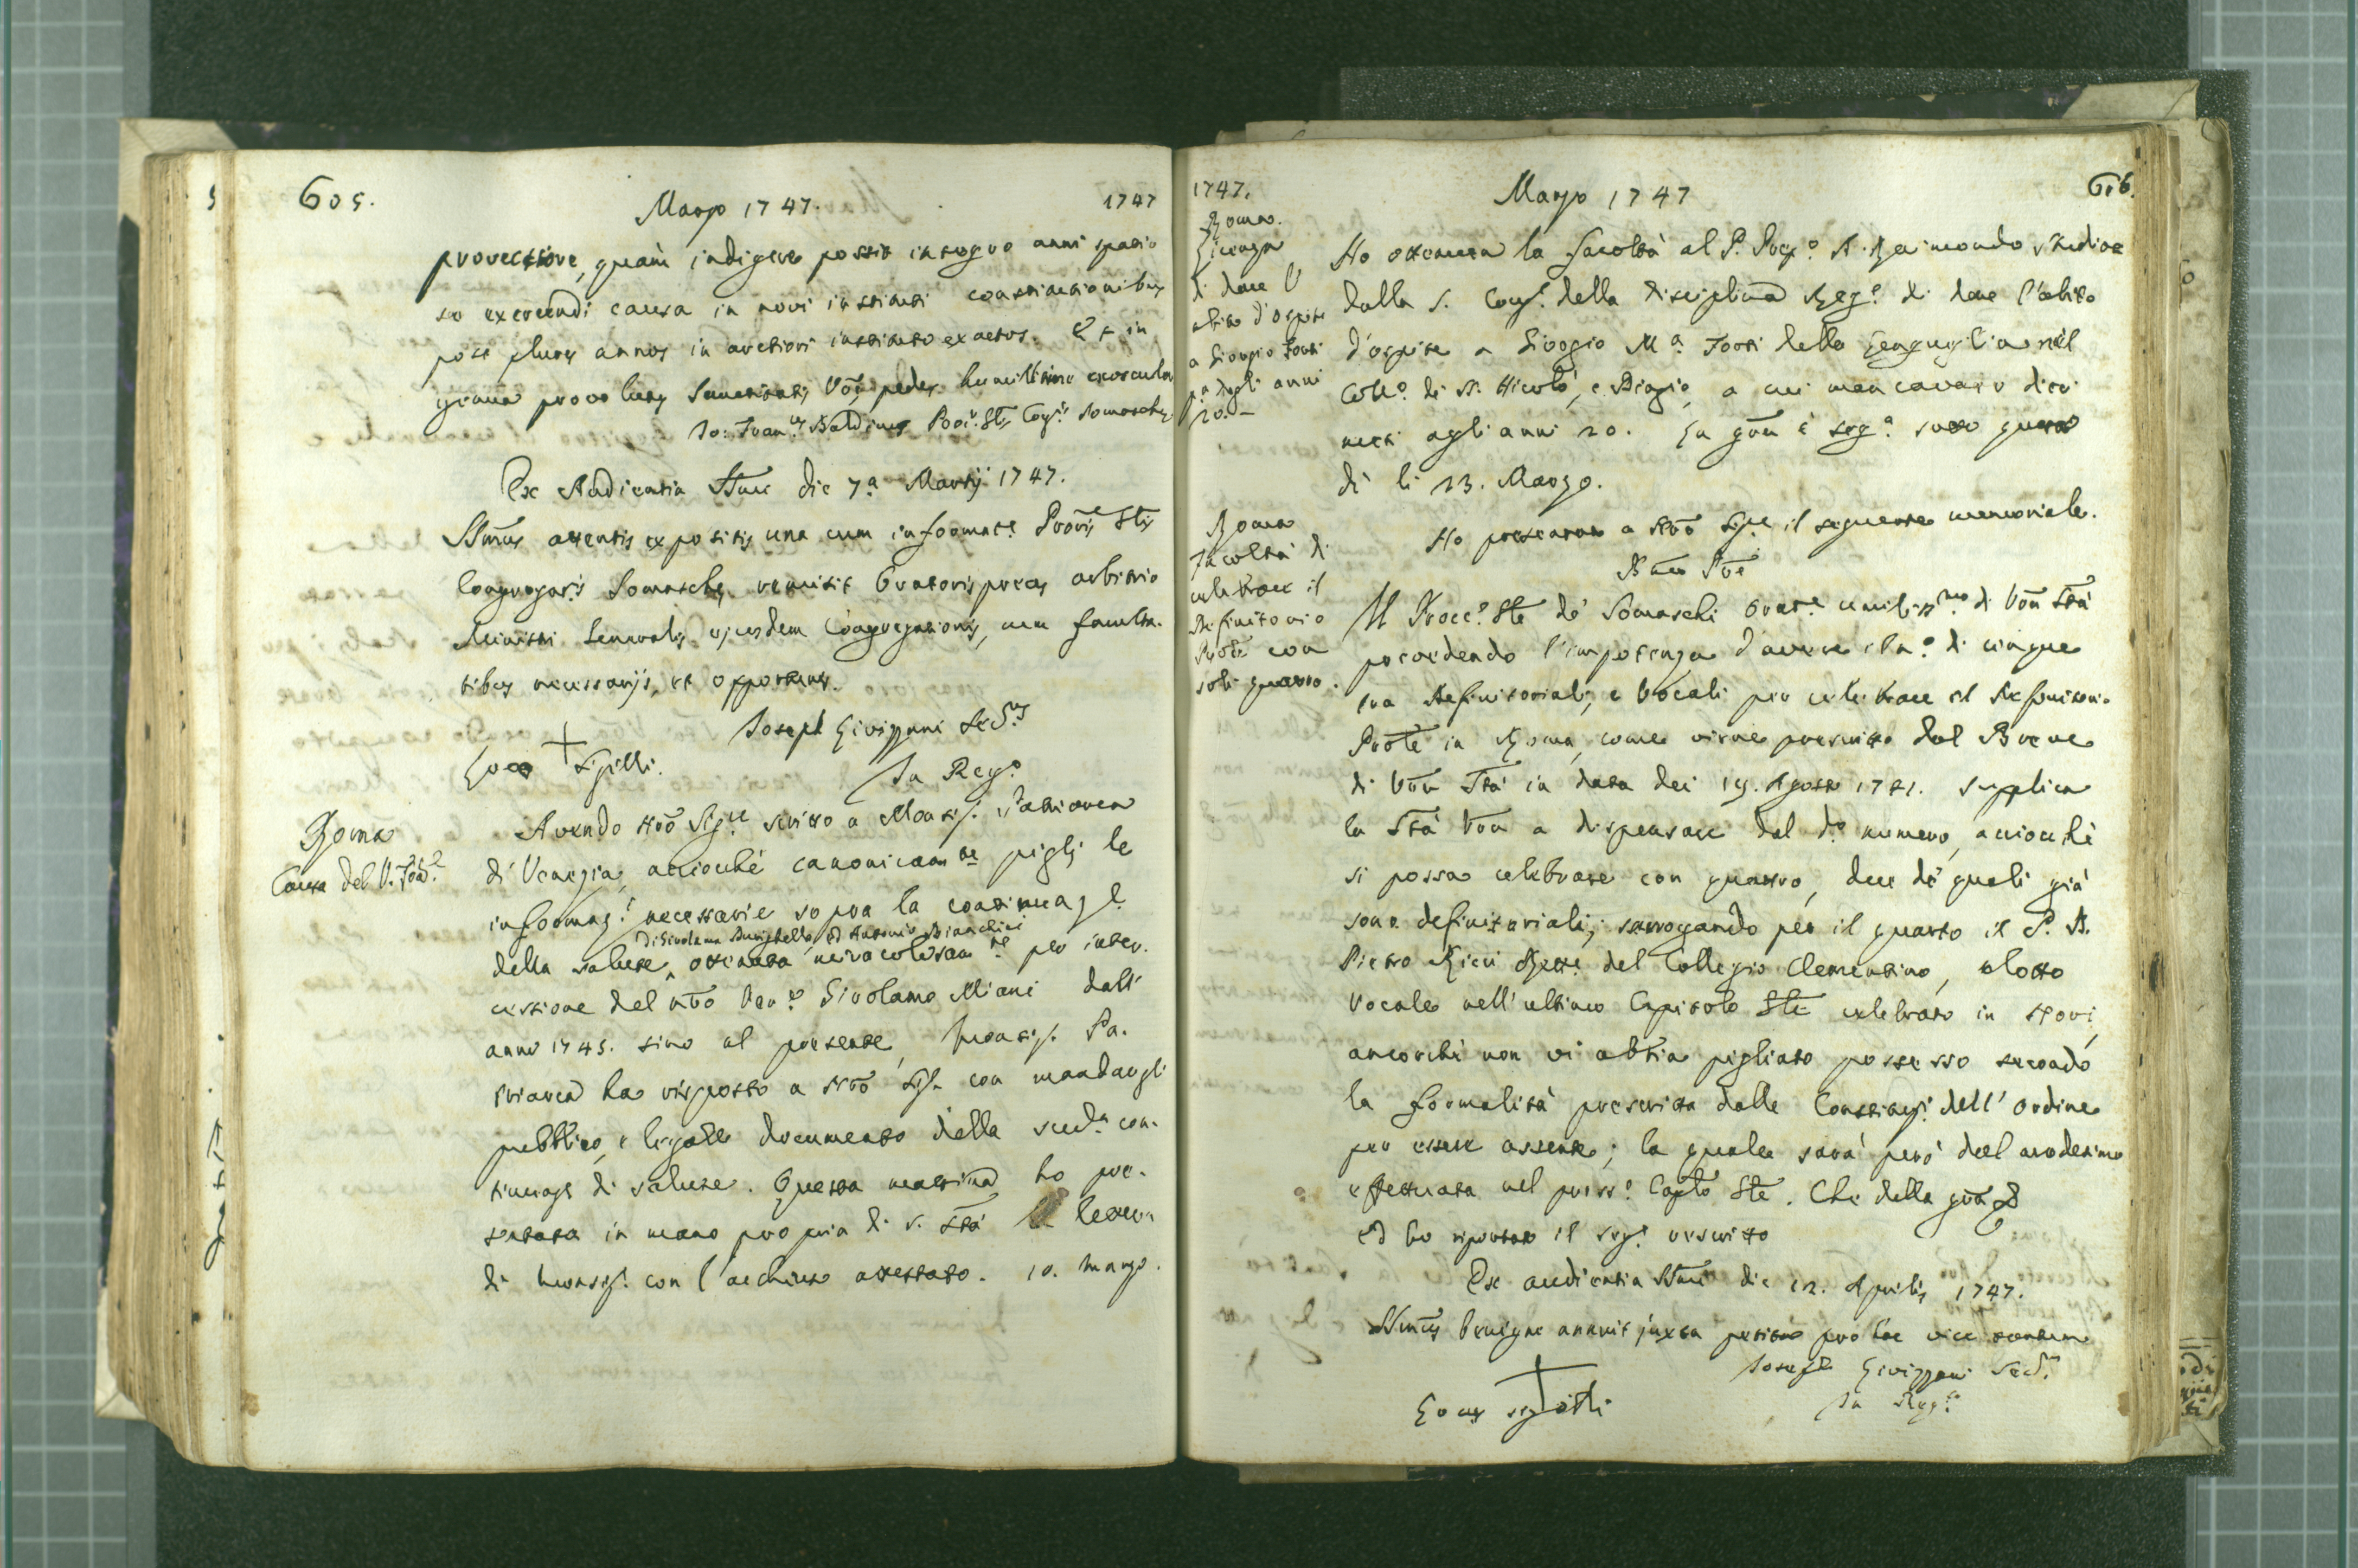 605.
Marzo 1747.
1747
provectiore, quam indigere possit integro anni spatio
se exercendi causa in novi instituti constitutionibus
post plures annos in arctiori instituto exactos. Et in
genua provolutus Sanctitatis Vrae pedes humillime exosculatur
Jo: Franc.us Baldinus Proc.r Glis Cong.is Somaschae
Ex Audientia SSmi die 7.a Martij 1747.
SSmus attentis expositis una cum informat.e Proris Glis
Congregat.is Somaschae, remisit Oratoris preces arbitrio
Ministri Generalis ejusdem Congregationis, cum faculta-
tibus necessarijs, et opportunis.
Joseph Livizzani Sec.us
Loco + Sigilli.
In Reg.o
Roma
Causa del V. Fond.e
Avendo Nrō Sig.re scritto a Monsig. Patriarca
di Venezia, acciochè canonicam.te pigli le
informaz.i necessarie sopra la continuaz.e
di Girolama Durighello, ed Antonio Bianchini
della salute ^ ottenuta miracolosam.te per inter-
cessione del nrō Ven.e Girolamo Miani dall'
anno 1743. sino al presente, Monsig. Pa-
triarca ha risposto a Nrō Sig.e con mandargli
pubblico, e legale documento della sud.a con-
tinuaz.e di salute. Questa mattina ho pre-
sentata in mano propria di S. Stà la lettera
di Monsig. con l'acchiuso attestato. 10. Marzo.
1747.
Marzo 1747
606.
Roma.
Licenza
di dare l'
abito d'ospite
a Giorgio Torti
p.a degli anni
20.
Ho ottenuta la facoltà al P. Prep.o D. Raimondo Studiosi
dalla S. Cong.e della Disciplina Reg.e di dare l'abito
d'ospite a Giorgio M.a Torti della Lengueglia nel
Coll.o di S. Nicolò, e Biagio, a cui mancavano dieci
mesi agli anni 20. La grā è seg.a sotto questo
dì li 23. Marzo.
Roma
Facoltà di
celebrare il
Definitorio
Prōle con
soli quattro.
Ho presentato a Nrō Sig.re il seguente memoriale.
Bmō Prē
Il Procc.e Gle de' Somaschi Orat.e umiliss.mo di Vrā Stà
prevedendo l'impotenza d'avere il n.o di cinque
tra Definitoriali, e Vocali per celebrare il Definitorio
Prōle in Roma, come viene permesso dal Breve
di Vrā Stà in data dei 19. Agosto 1741. supplica
la Stà Vrā a dispensare dal d.o numero, acciochè
si possa celebrare con quattro, due de' quali già
sono definitoriali; surrogando per il quarto il P. D.
Pietro Ricci Rett.e del Collegio Clementino, eletto
Vocale nell'ultimo Capitolo Gle celebrato in Novi,
ancorchè non vi abbia pigliato possesso secondo
la formalità prescritta dalle Constituz.i dell'ordine
per essere assente; la quale sarà però dal medesimo
effettuata nel pross.o Caplō Gle. Che della grā &
ed ho riportato il seg.e rescritto
Ex audientia SSmi die 12. Aprilis 1747.
SSmus benigne annuit juxta petita pro hac vice tantum
Joseph Livizzani Sec.s
Locus + sigilli
In Reg.o